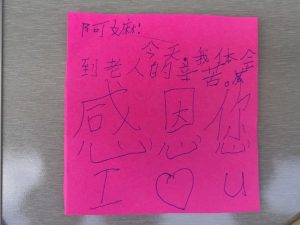 阿嫲!
今天,我体会
到老人的辛苦。
感恩你
I ♡ U